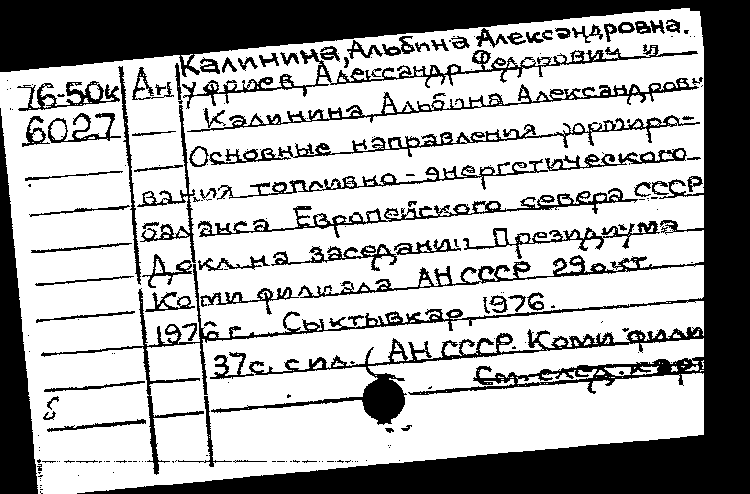 Калинина, Альбина Александровна.
76-50к Ануфриев, Александр Федорович и
6027 Калинина, Альбина Александровн
Основные направления формиро-
вания топливно-энергетического
баланса Европейского севера СССР
Докл. на заседании Президиума
Коми филиала АН СССР 29 окт.
1976 г. Сыктывкар, 1976.
37с. с ил. (АН СССР. Коми фили
См. след. карт